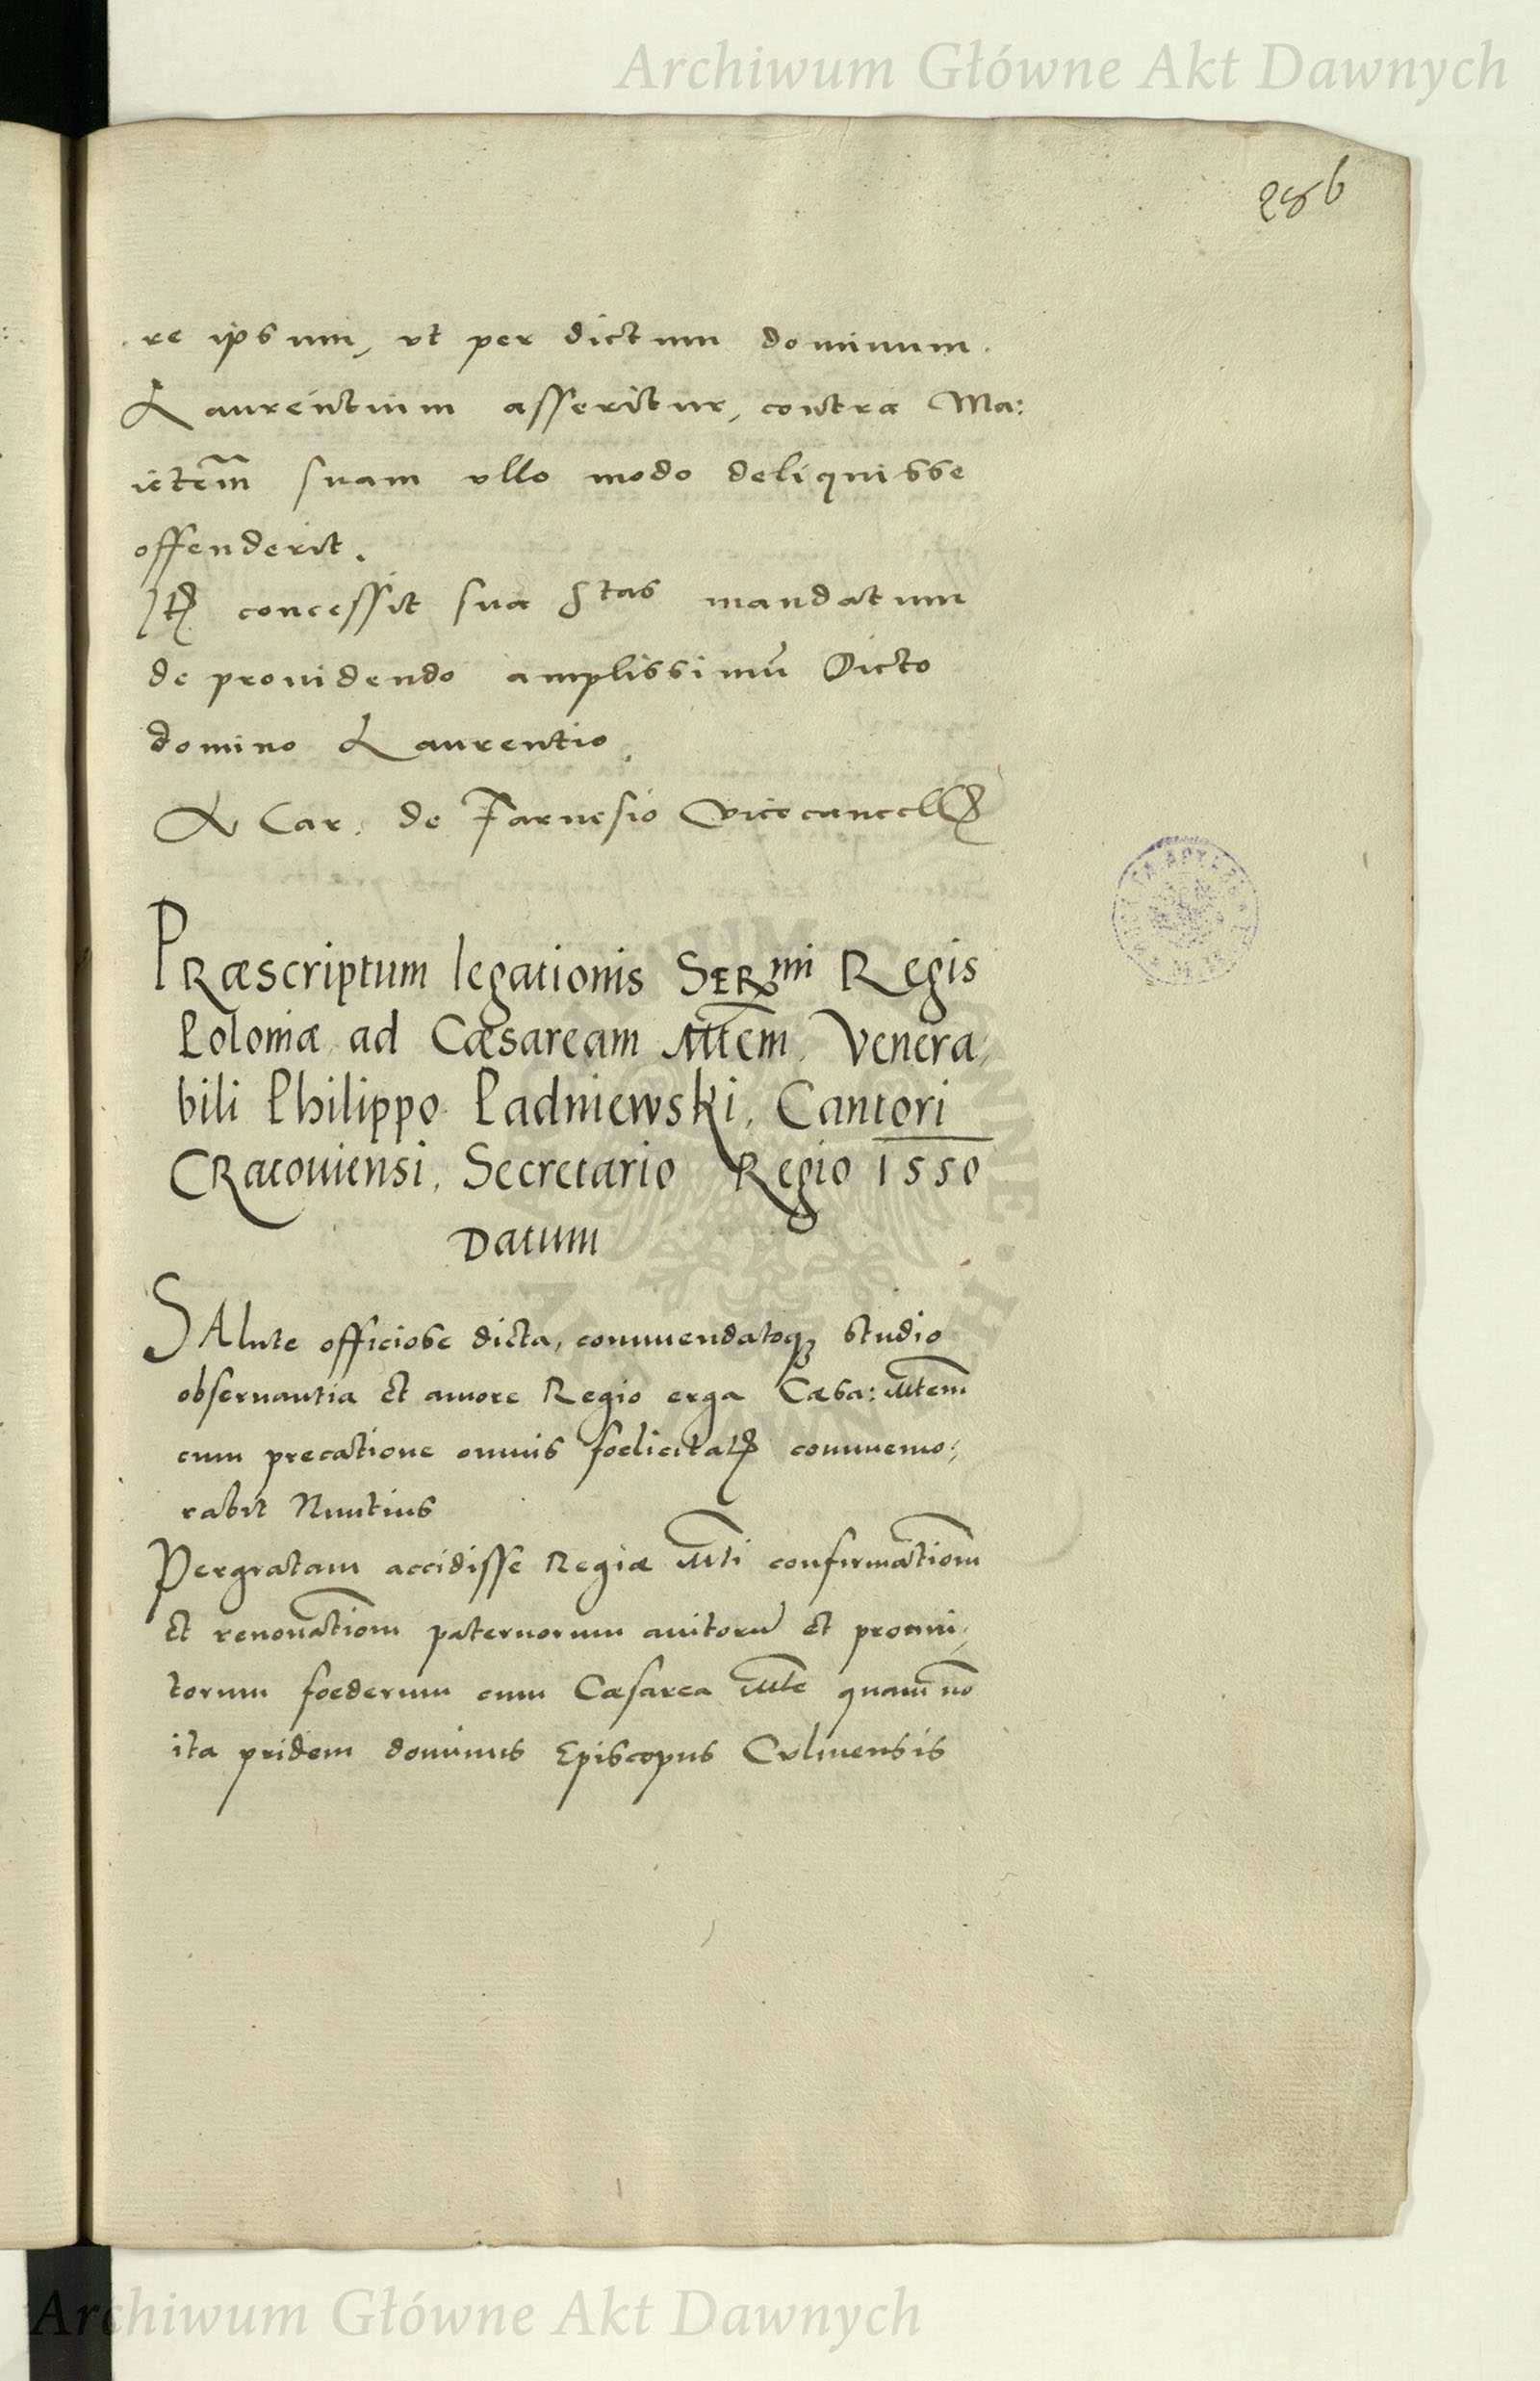 Archiwum Główne Akt Dawnych
286
re ipsum, vt per dictum dominum.
Laurentium asseritur, contra Ma:
ietem̅ suam vllo modo deliquisse
offenderit.
Itꝫ concessit sua Stas mandatum
de prouidendo amplissimū Dicto
domino Laurentio.
A Car. de Farnesio Vicecancell
PRæscriptum legationis SERmi Regis
Poloniæ ad Cæsaream Mtem̅. Venera,
bili Philippo Padniewski, Cantori
CRacouiensi, Secretario Regio 1550
Datum
SAlute officiose dicta, commendatoqꝫ studio
obseruantia et amore Regio erga Cæsa: Mtem̅
cum precatione omnis foelicitatꝭ commemo:
rabit Nuntius
Pergratam accidisse Regiæ Mti̅ confirmatiom̅
et renouatiom̅ paternorum auitorū et proaui,
torum foederum cum Cæsarea Mte̅ quam nō
ita pridem dominus Episcopus Culmensis
Archiwum Główne Akt Dawnych